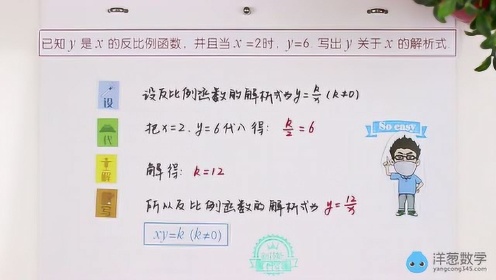 已知 y 是 x 的反比例函数，并且当 x =2时，y=6. 写出 y 关于 x 的解析式.
设
设反比例函数的解析式为 y=k/x (k≠0)
代
把 x=2, y=6 代入得: k/2=6
So easy
解
解得: k=12
写
所以反比例函数的解析式为 y=12/x
xy=k (k≠0)
洋葱数学
yangcong345.com